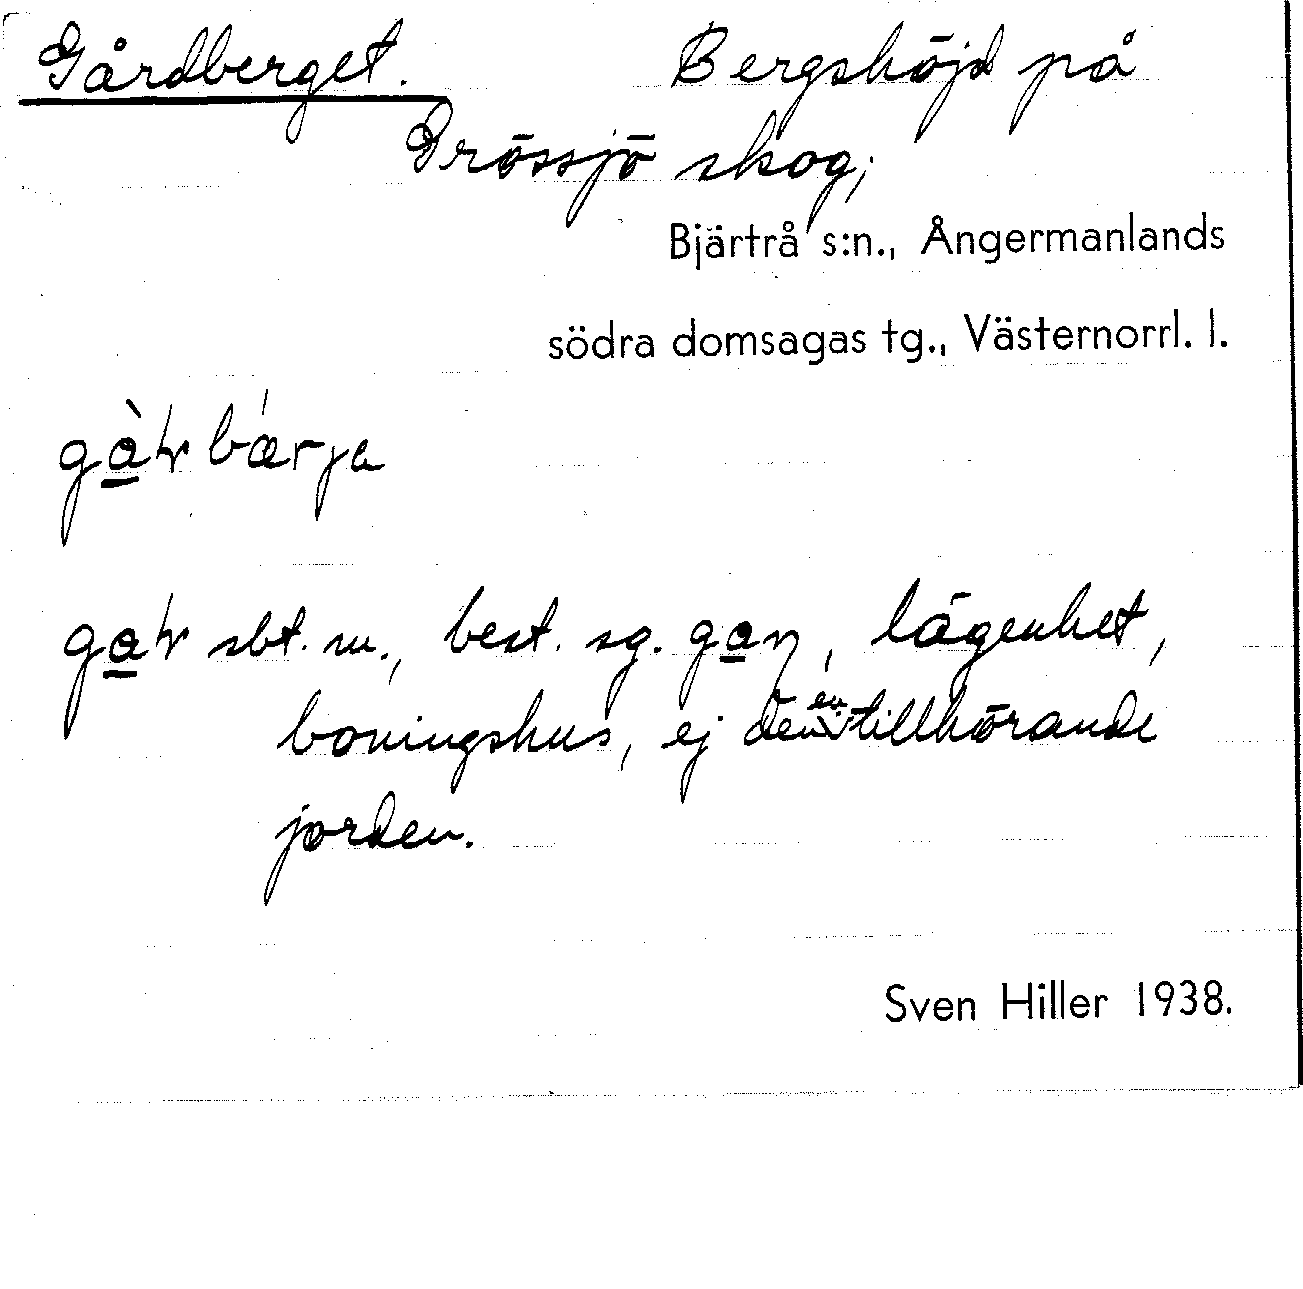 Gårdberget. Bergshöjd på
Drössjö skog;
Bjärtrå s:n., Ångermanlands
södra domsagas tg., Västernorrl. l.
sbt. m., best. sg. , lägenhet,
boningshus, ej den tillhörande
jorden.
Sven Hiller 1938.